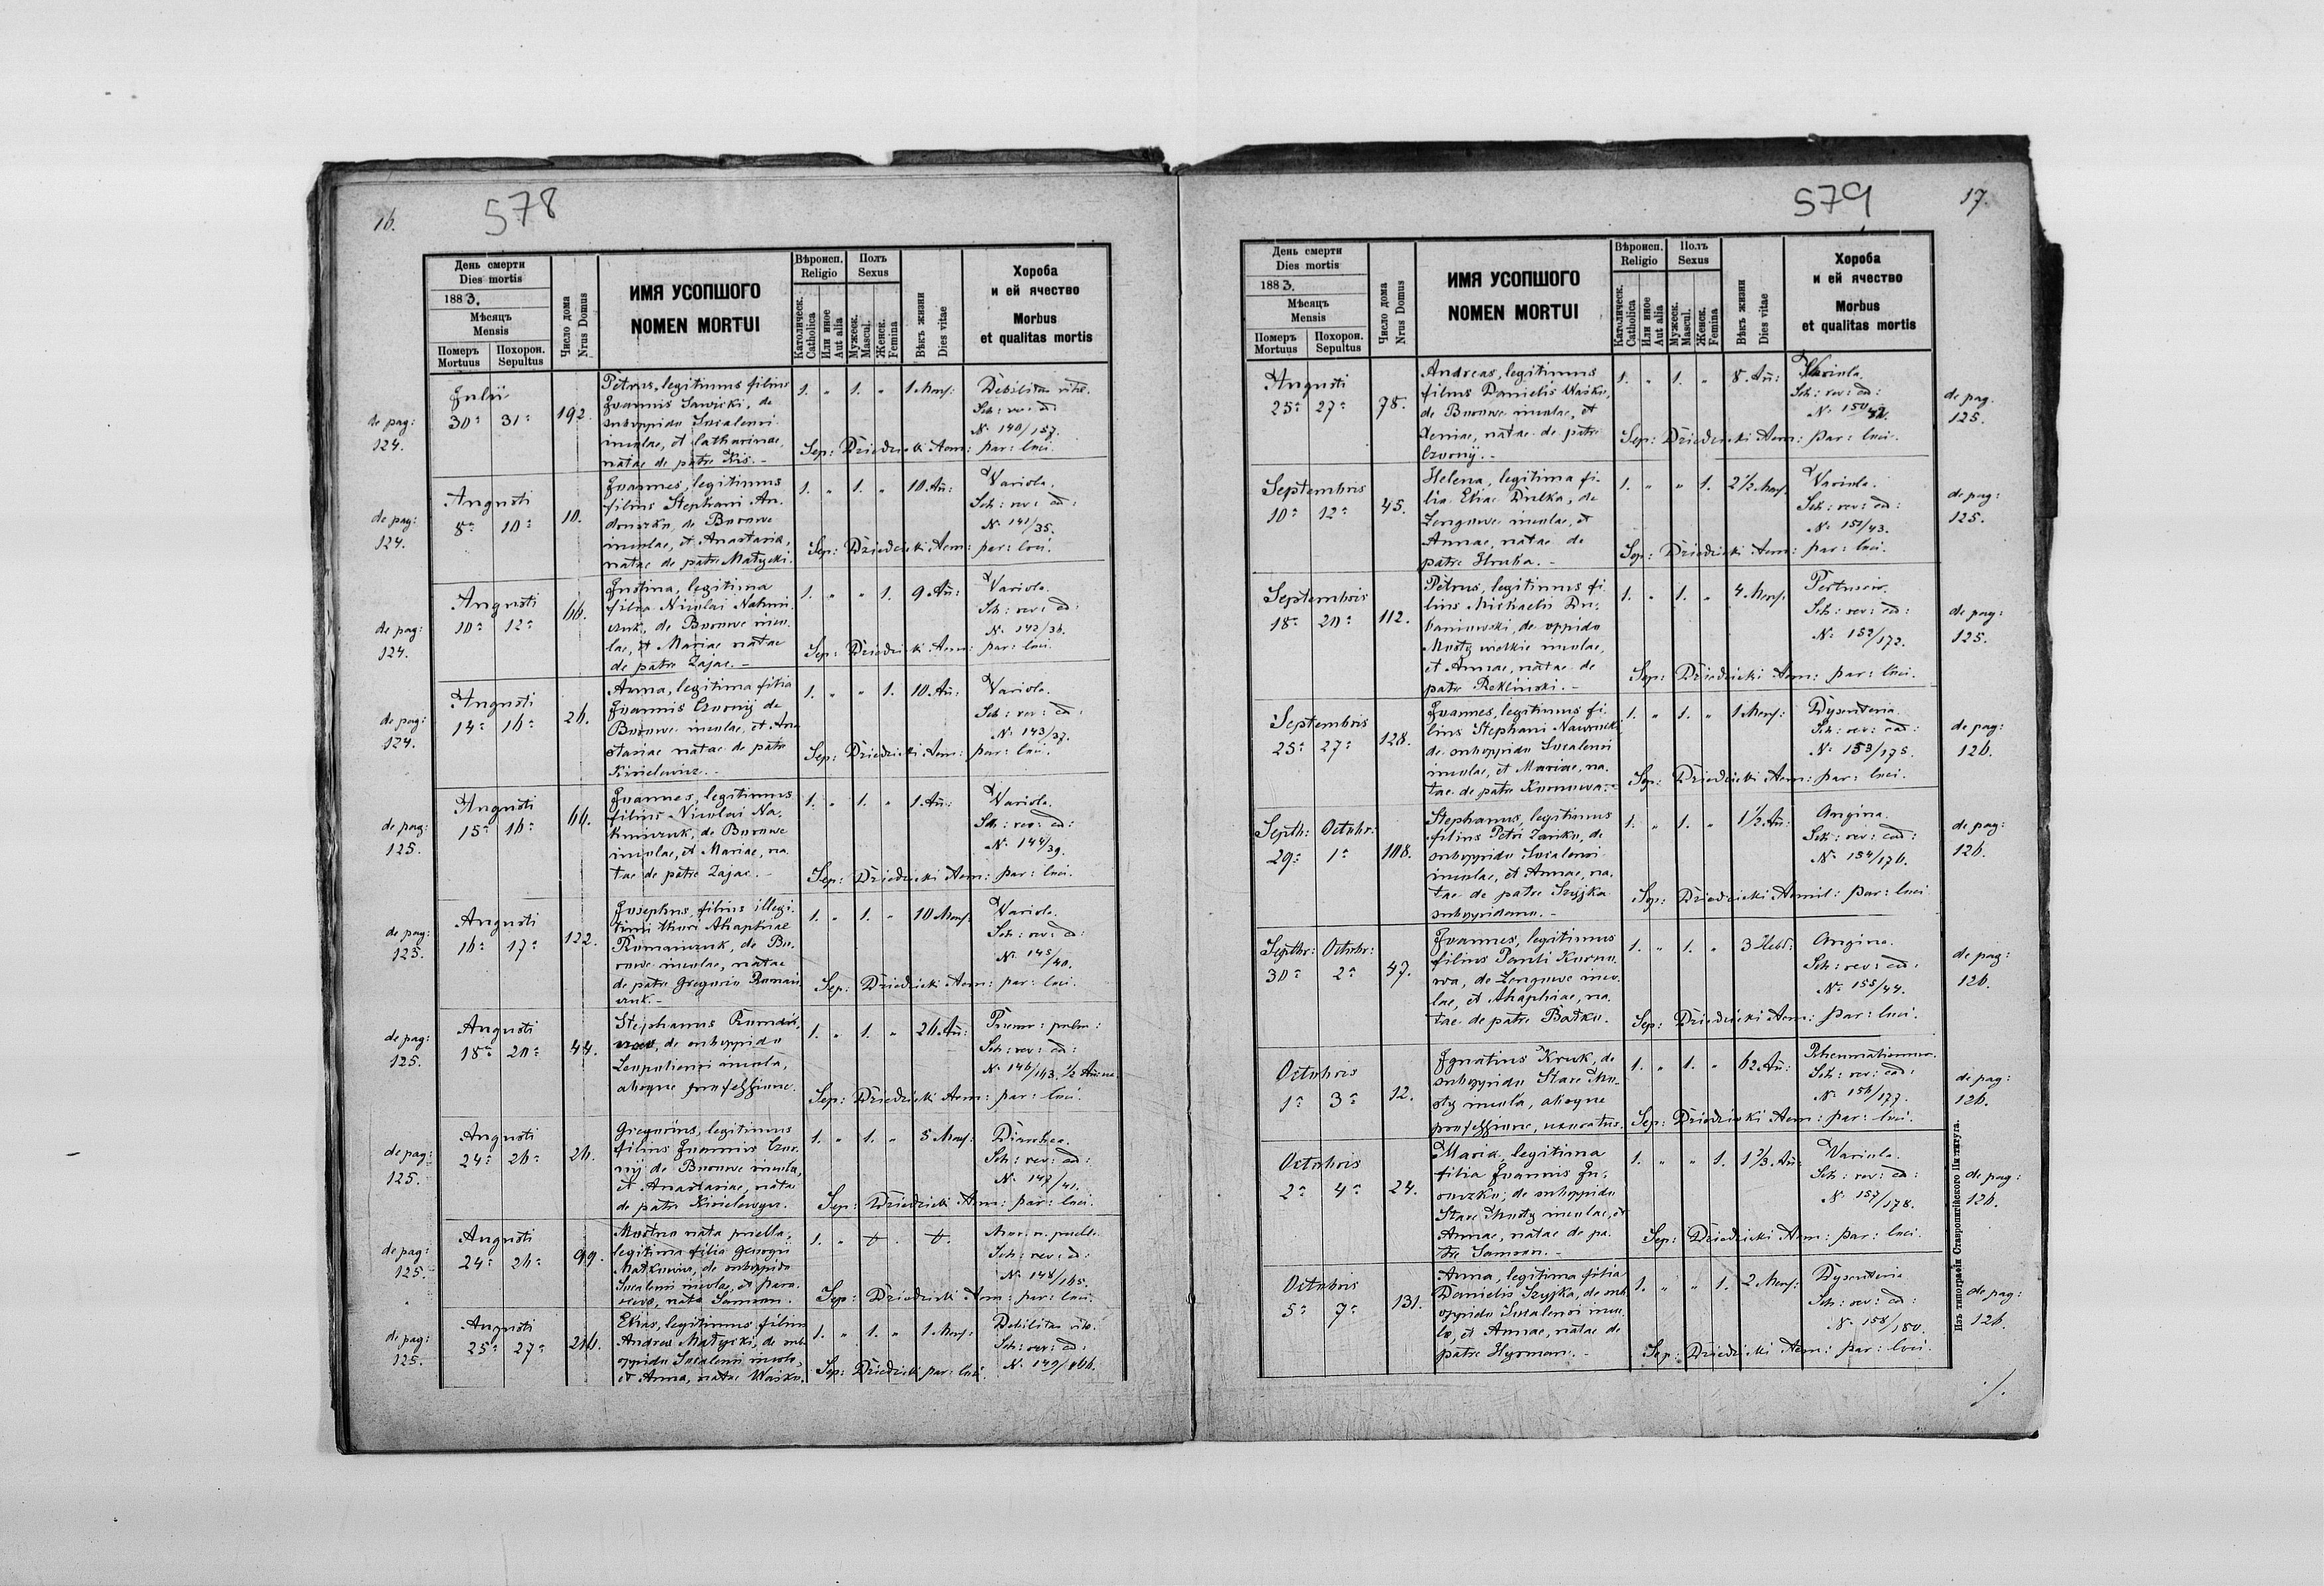 16.
578
День смерти
Dies mortis
1883.
Мѣсяцъ
Mensis
Померъ
Mortuus
Похорон.
Sepultus
Число дома
Nrus Domus
ИМЯ УСОПШОГО
NOMEN MORTUI
Вѣроисп.
Religio
Католическ.
Catholica
Или иное
Aut alia
Полъ
Sexus
Мужеск.
Mascul.
Женск.
Femina
Вѣкъ жизни
Dies vitae
Хороба
и ей ячество
Morbus
et qualitas mortis
de pag:
124.
Julii
30 31 192.
Petrus, legitimus filius
Joannis Sawicki, de
incolae, et Catharinae,
natae de patre Kis. -
1. " 1. " 1 Mens:
Debilitas vitae.
Sch: rev: ead:
N. 140/157.
Sep: Dziedzicki Adm: par: loci.
de pag:
124.
Augusti
8 10 10.
Joannes, legitimus
filius Stephani An
, de Burowe
incolae, et Anastasiae,
natae de patre Matycki.
1. " 1. " 10. Añ:
Variola.
Sch: rev: ead:
N. 141/35.
Sep: Dziedzicki Adm: par: loci.
de pag:
124.
Augusti
10 12 66.
Justina, legitima
filia Nicolai
de Burowe inco
lae, et Mariae natae
de patre Zajac. -
1. " " 1. 9. Añ:
Variola.
Sch: rev: ead:
N. 142/36.
Sep: Dziedzicki Adm: par: loci.
de pag:
124.
Augusti
14 16 26.
Anna, legitima filia
Joannis Czornij de
Burowe incolae, et Ana
stasiae natae de patre
Kisielewicz. -
1. " " 1. 10. Añ:
Variola.
Sch: rev: ead:
N. 143/37.
Sep: Dziedzicki Adm: par: loci.
de pag:
125.
Augusti
15 16 66.
Joannes, legitimus
filius Nicolai Na
de Burowe
incolae, et Mariae, na
tae de patre Zajac. -
1. " 1. " 1. Añ:
Variola.
Sch: rev: ead:
N. 144/39.
Sep: Dziedzicki Adm: par: loci.
de pag:
125.
Augusti
16 17 122.
Josephus, filius illegi
timi thori Ahaphiae
Romanczuk, de Bu
rowe incolae, natae
de patre Gregorio Roman
czuk. -
1. " 1. " 10 Mens:
Variola.
Sch: rev: ead:
N. 145/40.
Sep: Dziedzicki Adm: par: loci.
de pag:
125.
Augusti
18 20 44.
Stephanus
incola,
atque professione.
1. " 1. " 26. Añ:
Pneum: pulm:
Sch: rev: ead:
N. 146/163.
Sep: Dziedzicki Adm: par: loci.
de pag:
125.
Augusti
24 26 26.
Gregorius, legitimus
filius Joannis Czor
nij de Burowe incola,
et Anastasiae, natae
de patre Kisielewycz.
1. " 1. " 5 Mens:
Diarrhea.
Sch: rev: ead:
N. 147/41.
Sep: Dziedzicki Adm: par: loci.
de pag:
125.
Augusti
24 26 99.
Mortua nata puella,
legitima filia Georgii
Małkiewicz, de
incolae, et Para
scevae, nata Samson.
1. " + . +.
Mor. n. puella
Sch: rev: ead:
N. 148/165.
Sep: Dziedzicki Adm: par: loci.
de pag:
125.
Augusti
25 27 216.
Elias, legitimus filius
Andreae Matycki, de sub
incolae,
et Anna, natae Wasko.
1. " 1. " 1 Mens:
Debilitas vitae.
Sch: rev: ead:
N. 149/166.
Sep: Dziedzicki par: loci.
579
17.
День смерти
Dies mortis
1883.
Мѣсяцъ
Mensis
Померъ
Mortuus
Похорон.
Sepultus
Число дома
Nrus Domus
ИМЯ УСОПШОГО
NOMEN MORTUI
Вѣроисп.
Religio
Католическ.
Catholica
Или иное
Aut alia
Полъ
Sexus
Мужеск.
Mascul.
Женск.
Femina
Вѣкъ жизни
Dies vitae
Хороба
и ей ячество
Morbus
et qualitas mortis
Augusti
25 27 78.
Andreas, legitimus
filius Danielis Waśko,
de Burowe incolae, et
Xeniae, natae de patre
Czornij. -
1. " 1. " 8. Añ:
Variola.
Sch: rev: ead:
N. 150/42.
Sep: Dziedzicki Adm: par: loci.
de pag.
125.
Septembris
10 12 45.
Helena, legitima fi
lia Eliae Dulka, de
Zengowe incolae, et
Annae, natae de
patre Hruba. -
1. " " 1. 2½ Mens:
Variola.
Sch: rev: ead:
N. 151/43.
Sep: Dziedzicki Adm: par: loci.
de pag:
125.
Septembris
18 20 112.
Petrus, legitimus fi
lius Michaelis
de oppido
Mosty wielkie incolae,
et Annae, natae de
patre Reklinski. -
1. " 1. " 4. Mens:
Pertussis.
Sch: rev: ead:
N. 152/172.
Sep: Dziedzicki Adm: par: loci.
de pag:
125.
Septembris
25 27 128.
Joannes, legitimus fi
lius Stephani
incolae, et Mariae, na
tae de patre Kornowa. -
1. " 1. " 1 Mens:
Dysenteria.
Sch: rev: ead:
N. 153/175.
Sep: Dziedzicki Adm: par: loci.
de pag:
126.
Septb: Octobr:
29 1 108.
Stephanus, legitimus
filius Petri Zanko, de
incolae, et Annae, na
tae de patre Szyjka
1. " 1. " 1½ Añ:
Angina.
Sch: rev: ead:
N. 154/176.
Sep: Dziedzicki Admil: par: loci.
de pag:
126.
Septbr: Octobr:
30 2 47.
Joannes, legitimus
filius Pauli Korno
wa, de Zengowe inco
lae, et Ahaphiae, na
tae de patre Batko.
1. " 1. " 3 Hebd:
Angina.
Sch: rev: ead:
N. 155/44.
Sep: Dziedzicki Adm: par: loci.
de pag:
126.
Octobris
1 3 12.
Ignatius Kruk, de
suboppido Stare Mo
sty incola, atque
professione, uxoratus.
1. " 1. " 62. Añ:
Rheumatismus.
Sch: rev: ead:
N. 156/177.
Sep: Dziedzicki Adm: par: loci.
de pag:
126.
Octobris
2 4 24.
Maria, legitima
filia Joannis
de suboppido
Stare Mosty incolae, et
Annae, natae de pa
tre Samson. -
1. " " 1. 1⅔ Añ:
Variola.
Sch: rev: ead:
N. 157/178.
Sep: Dziedzicki Adm: par: loci.
de pag:
126.
Octobris
5 7 131.
Anna, legitima filia
Danielis Szyjka, de sub
inco
lae, et Annae, natae de
patre Hyrman. -
1. " " 1. 2 Mens:
Dysenteria
Sch: rev: ead:
N. 158/180.
Sep: Dziedzicki Adm: par: loci.
de pag:
126.
Изъ типографіи Ставропигійского Института.
./.